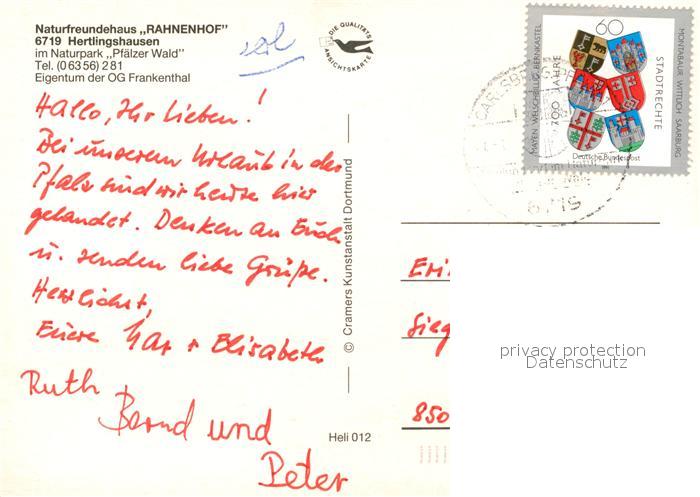 Naturfreundehaus „RAHNENHOF"
6719 Hertlingshausen
im Naturpark „Pfälzer Wald"
Tel. (0 63 56) 2 81
Eigentum der OG Frankenthal
DIE QUALITÄTS
ANSICHTSKARTE
Hallo, Ihr Lieben!
Bei unserem Urlaub in der
Pfalz sind wir heute hier
gelandet. Denken an Euch
u. senden liebe Grüße.
Herzlichst,
Euere Max + Elisabeth
Ruth
Bernd und
Peter
© Cramers Kunstanstalt Dortmund
Heli 012
60
MAYEN WELSCHBILLIG BERNKASTEL
700 JAHRE
STADTRECHTE
MONTABAUR WITTLICH SAARBURG
Deutsche Bundespost
CARLSBERG
6719
Eri
Sieg
850
privacy protection
Datenschutz